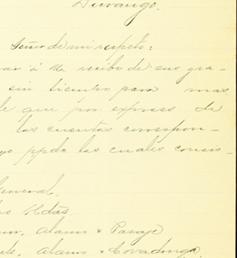 Durango.
Señor de mi respeto:
á Ud. recibo de sus gra-
sin tiempo para mas
que por express de
las cuentas correspon-
ppdo las cuales consis-
General.
Hdas
Alamo & Pasaje
Alamo & Covadonga.